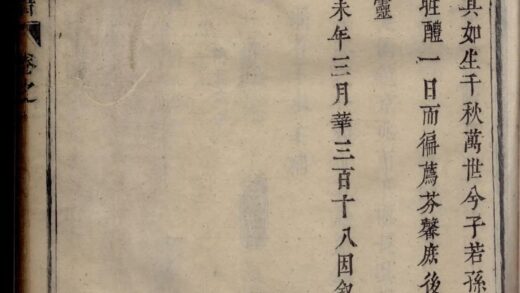 其如生千秋萬世兮子若孫
牲醴一日而徧薦芬馨庶後
靈
未年三月華三百十八因敘
卷之